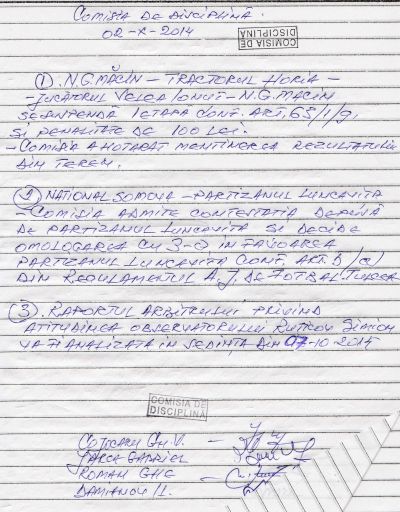 COMISIA DE DISCIPLINĂ.
02-X-2014
COMISIA DE
DISCIPLINĂ
① N.G. MĂCIN – TRACTORUL HORIA –
– JUCĂTORUL VELEA IONUT – N.G. MACIN
SESUSPENDĂ 1 ETAPĂ CONF. ART. 63/1/g,
SI PENALITATE DE 100 LEI.
– COMISIA A HOTARAT MENTINEREA REZULTATULUI
DIN TEREN.
② NATIONAL SOMOVA – PARTIZANUL LUNCAVITA
– COMISIA ADMITE CONTESTATIA DEPUSĂ
DE PARTIZANUL LUNCAVITA SI DECIDE
OMOLOGAREA CU 3-0 IN FAVOAREA
PARTIZANUL LUNCAVITA CONF. ART. /a)
DIN REGULAMENTUL A.J. DE FOTBAL TULCEA
③. RAPORTUL ARBITRULUI PRIVIND
ATITUDINEA OBSERVATORULUI SIMION
VA FI ANALIZATA IN SEDINTA DIN 07-10 2014
COMISIA DE
DISCIPLINĂ
COJOCARU GH. V. –
GABRIEL
ROMAN GHE –
DAMIANOV IL.